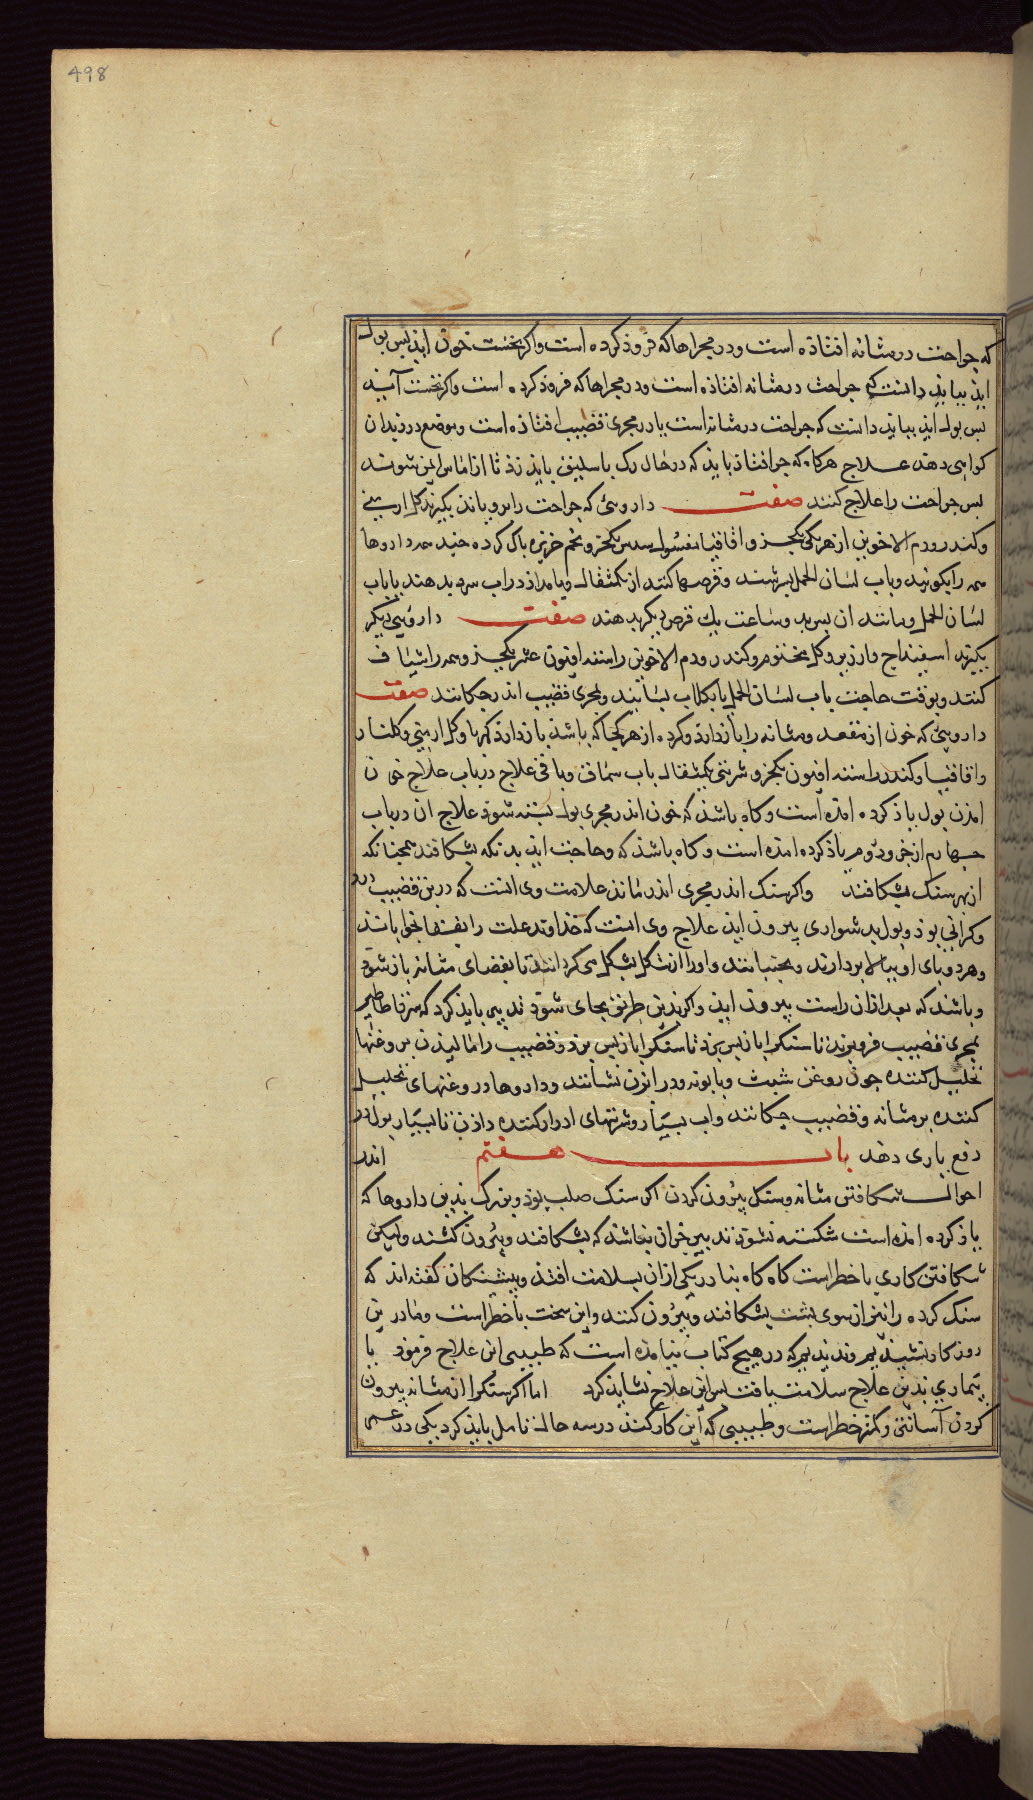 498
که جراحت در مثانه افتاذه است و در مجراها که فروذ کرده است و اکر نخست خون ایذ بس بول
ایذ ببایذ دانست که جراحت در مثانه افتاذه است و در مجراها که فروذ کرده است و اکر نخست آید
بس بول ایذ ببایذ دانست که جراحت در مثانه است یا در مجری قضیب افتاذه است و موضع درذ بدان
کواهی دهد علاج هرکاه که جراحت افتاذ بایذ که در حال رک باسلیق بایذ زذ تا از اماس ایمن شوند
بس جراحت را علاج کنند صفت داروئی که جراحت را برویاند بکیرند کل ارمنی
و کندر و دم الاخوین از هریکی یکجزو اقاقیا مغسول سدس یکجزو تخم خربزه باک کرده داروها
همه را بکوبند و باب لسان الحمل بسرشند و قرصها کنند از یکمثقال و بامداذ در اب سرد بدهند یا باب
لسان الحمل و مانند ان سرد و ساعت یك قرص دیکر بدهند صفت داروئی دیکر
بکیرند اسفیداج و انزروت و کل مختوم و کندر و دم الاخوین راستا راست افیون عشر یکجزو همه را شیاف
کنند و بوقت حاجت باب لسان الحمل یا بکلاب بسایند و بمجری قضیب اندر چکانند صفت
داروئی که خون از مقعد و مثانه را بازدارذ و کرده از هرکجا که باشذ بازدارذ کهربا و کل ارمنی و کلنار
و اقاقیا و کندر افیون یکجزو شربتی یکمثقال باب سماق و باقی علاج در باب علاج خون
امذن بول یاذ کرده امذه است و کاه باشذ که خون اندر مجری بول بسته شوذ علاج ان در باب
جهارم از جزو دوم یاذ کرده امذه است و کاه باشذ که و حاجت ایذ بدانکه بشکافند همجنانکه
از بهر سنک بشکافند و اکر سنک اندر مجری اندر ماند علامت وی انست که در بن قضیب درد
و کرانی بوذ و بول بدشواری بیرون ایذ علاج وی انست که خذاوند علت را بقفا بخوابانند
و هر دو بای او ببالا بردارند و بجنبانند و او را از شکل بشکل می کردانند تا بفضای مثانه باز شوذ
و باشذ که بعد ازان راست بیرون ایذ و اکر بدین طریق بجای نشوذ تدبیر بایذ کرد که سر قاطاطیر
بمجری قضیب فرو برند تا سنک را باز بس برذ تا سنک را باز بس برذ و قضیب را مالیذن بروغنها
تحلیل کننده جون روغن شبت و بابونه و در ابزن نشانند و داروها و روغنهای تحلیل
کننده بر مثانه و قضیب چکانند و اب بسیار و شربتهای ادرار کننده داذن تا بسیار بول در
دفع یاری دهد باب هفتم اندر
احوال شکافتن مثانه و سنک بیرون کردن اکر سنک صلب بوذ و بزرک بدین داروها که
یاذ کرده امذه است شکسته نشوذ تدبیر جز ان نباشذ که بشکافند و بیرون کشند ولیکن
شکافتن کاری با خطر است کاه کاه بنادر یکی ازان بسلامت افتذ و بیشنکان کفته اند که
سنک کرده را نیز از سوی بشت بشکافند و بیرون کنند و این سخت با خطر است و ما در این
روزکار نشنیدیم و ندیدیم که در هیج کتاب نیامذه است که طبیبی این علاج فرموذ یا
بیماری بدین علاج سلامت یافت بس این علاج نشاید کرد اما اکر سنک را از مثانه بیرون
کردن آسانتر و کمتر خطر است و طبیبی که این کار کند در سه حال تامل بایذ کرد یکی در